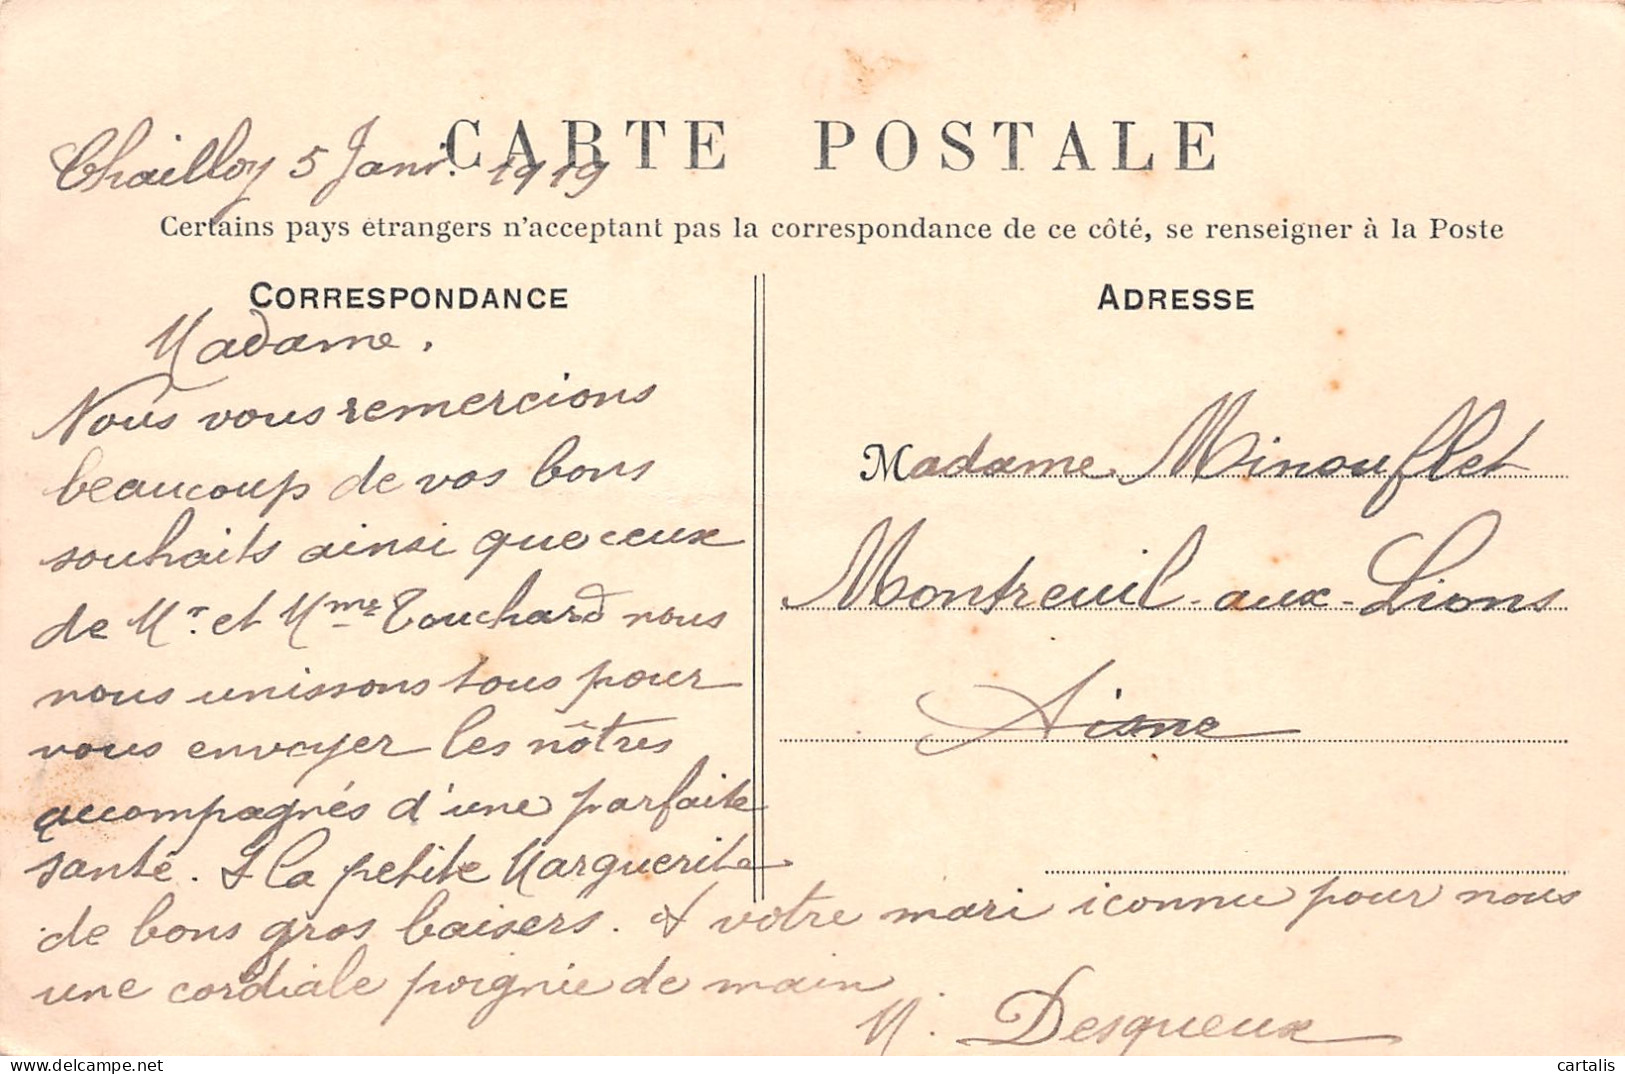 CARTE POSTALE
Chailley 5 Janv. 1919
Certains pays étrangers n'acceptant pas la correspondance de ce côté, se renseigner à la Poste
CORRESPONDANCE
Madame.
Nous vous remercions
beaucoup de vos bons
souhaits ainsi que ceux
de Mr. et Mme Touchard nous
nous unissons tous pour
vous envoyer les nôtres
accompagnés d'une parfaite
santé. à la petite Marguerite
de bons gros baisers. & votre mari iconnu pour nous
une cordiale poignie de main
M. Desqueux
ADRESSE
Madame Minouflet
Montreuil-aux-Lions
Aisne
delcampe.net
cartalis